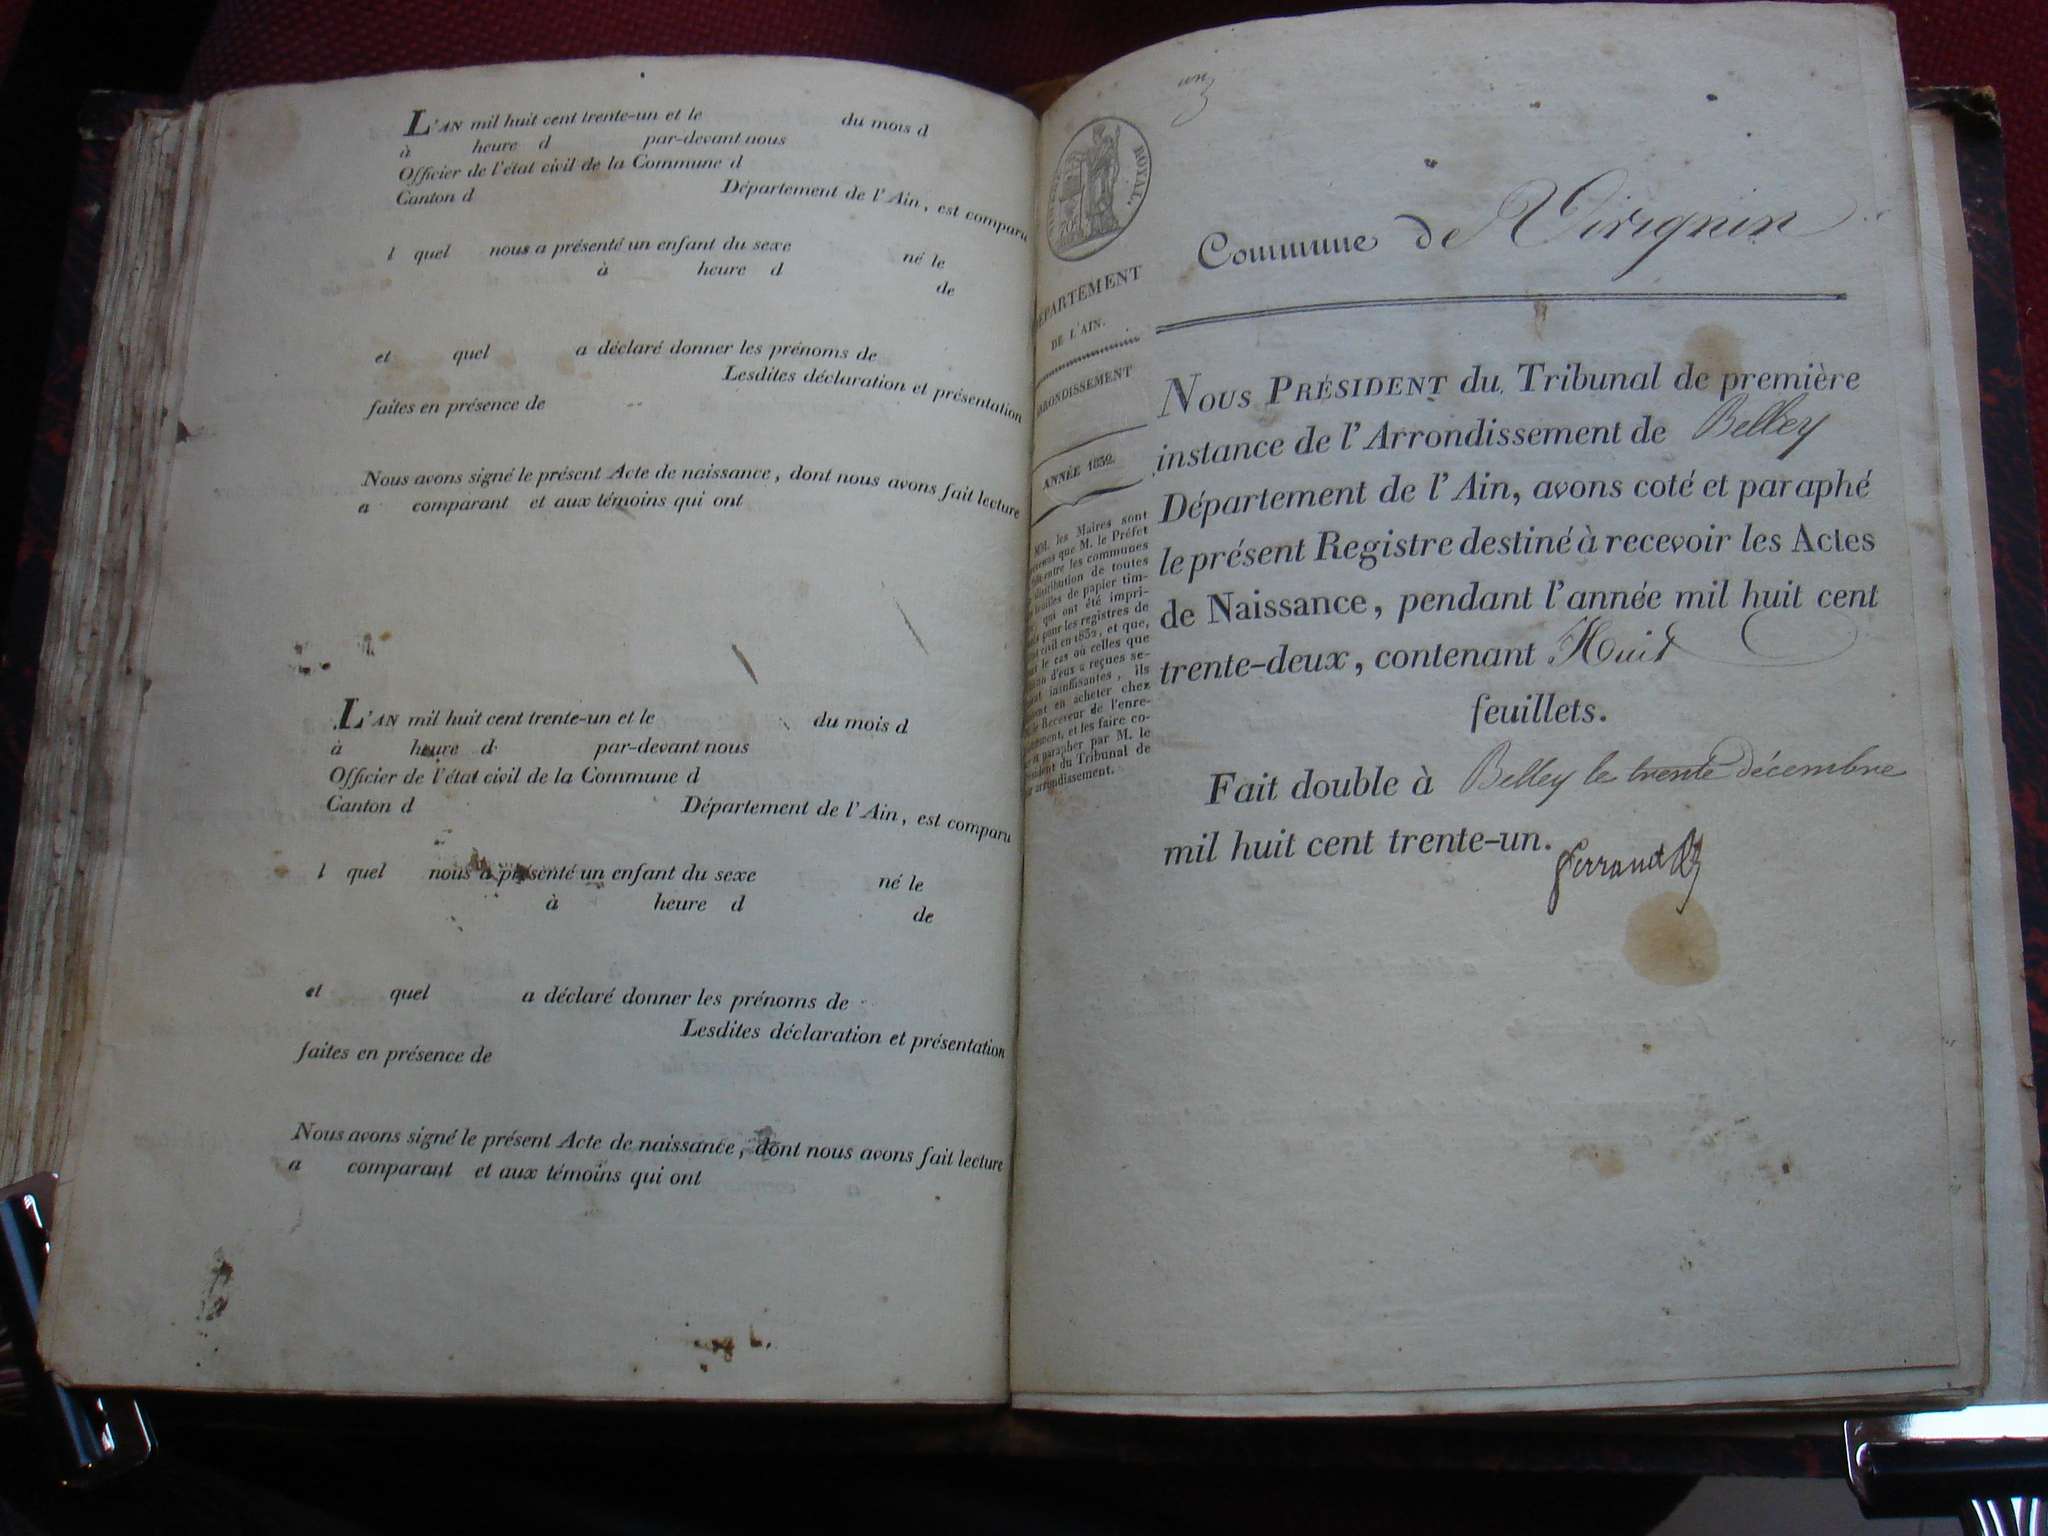 L'AN mil huit cent trente-un et le du mois d
à heure d par-devant nous
Officier de l'état civil de la Commune d
Canton d Département de l'Ain, est comparu
l quel nous a présenté un enfant du sexe né le
à heure d de
et quel a déclaré donner les prénoms de
Lesdites déclaration et présentation
faites en présence de
Nous avons signé le présent Acte de naissance, dont nous avons fait lecture
a comparant et aux témoins qui ont
L'AN mil huit cent trente-un et le du mois d
à heure d par-devant nous
Officier de l'état civil de la Commune d
Canton d Département de l'Ain, est comparu
l quel nous a présenté un enfant du sexe né le
à heure d de
et quel a déclaré donner les prénoms de
Lesdites déclaration et présentation
faites en présence de
Nous avons signé le présent Acte de naissance, dont nous avons fait lecture
a comparant et aux témoins qui ont
un
ROYALE
DÉPARTEMENT
DE L'AIN.
ARRONDISSEMENT
ANNÉE 1832.
MM. les Maires sont
que M. le Préfet
entre les communes
distribution de toutes
feuilles de papier tim-
qui ont été impri-
pour les registres de
civil en 1832, et que,
le cas où celles que
d'eux a reçues se-
insuffisantes, ils
en acheter chez
Receveur de l'enre-
et les faire co-
parapher par M. le
du Tribunal de
arrondissement.
Commune de Virignin
NOUS PRÉSIDENT du Tribunal de première
instance de l'Arrondissement de Belley
Département de l'Ain, avons coté et paraphé
le présent Registre destiné à recevoir les Actes
de Naissance, pendant l'année mil huit cent
trente-deux, contenant Huit
feuillets.
Fait double à Belley le trente décembre
mil huit cent trente-un.